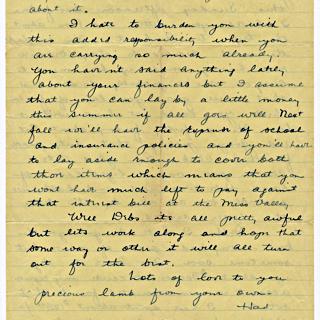 about it.
I hate to burden you with
this add'd responsibility when you
are carrying so much already.
You haven't said anything lately
about your finances but I assume
that you can lay by a little money
this summer if all goes well. Next
fall we'll have the expense of school
and insurance policies and you'll have
to lay aside enough to cover both
thos items which means that you
wont have much left to pay against
that interest bill at the Miss Valley
Well Dibs its all pretty awful
but lets work along and hope that
some way or other it will all turn
out for the best.
Lots of love to you
precious lamb from your own
Had